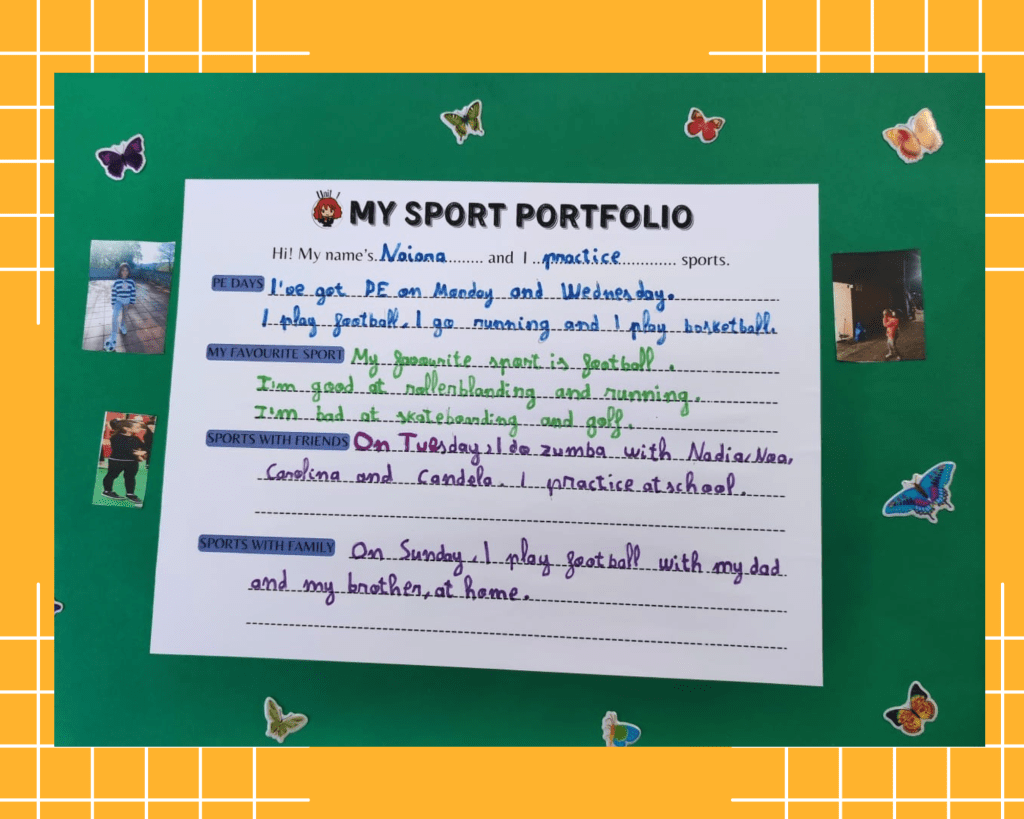 Unil!
MY SPORT PORTFOLIO
Hi! My name's. Naiana......... and I ..practice............. sports.
PE DAYS I've got PE on Monday and Wednesday.
I play football. I go running and I play basketball.
MY FAVOURITE SPORT My favourite sport is football.
I'm good at rollerblanding and running.
I'm bad at skateboanding and golf.
SPORTS WITH FRIENDS On Tuesday, I do zumba with Nadia, Noa,
Carolina and Candela. I practice at school.
SPORTS WITH FAMILY On Sunday, I play football with my dad
and my brother, at home.